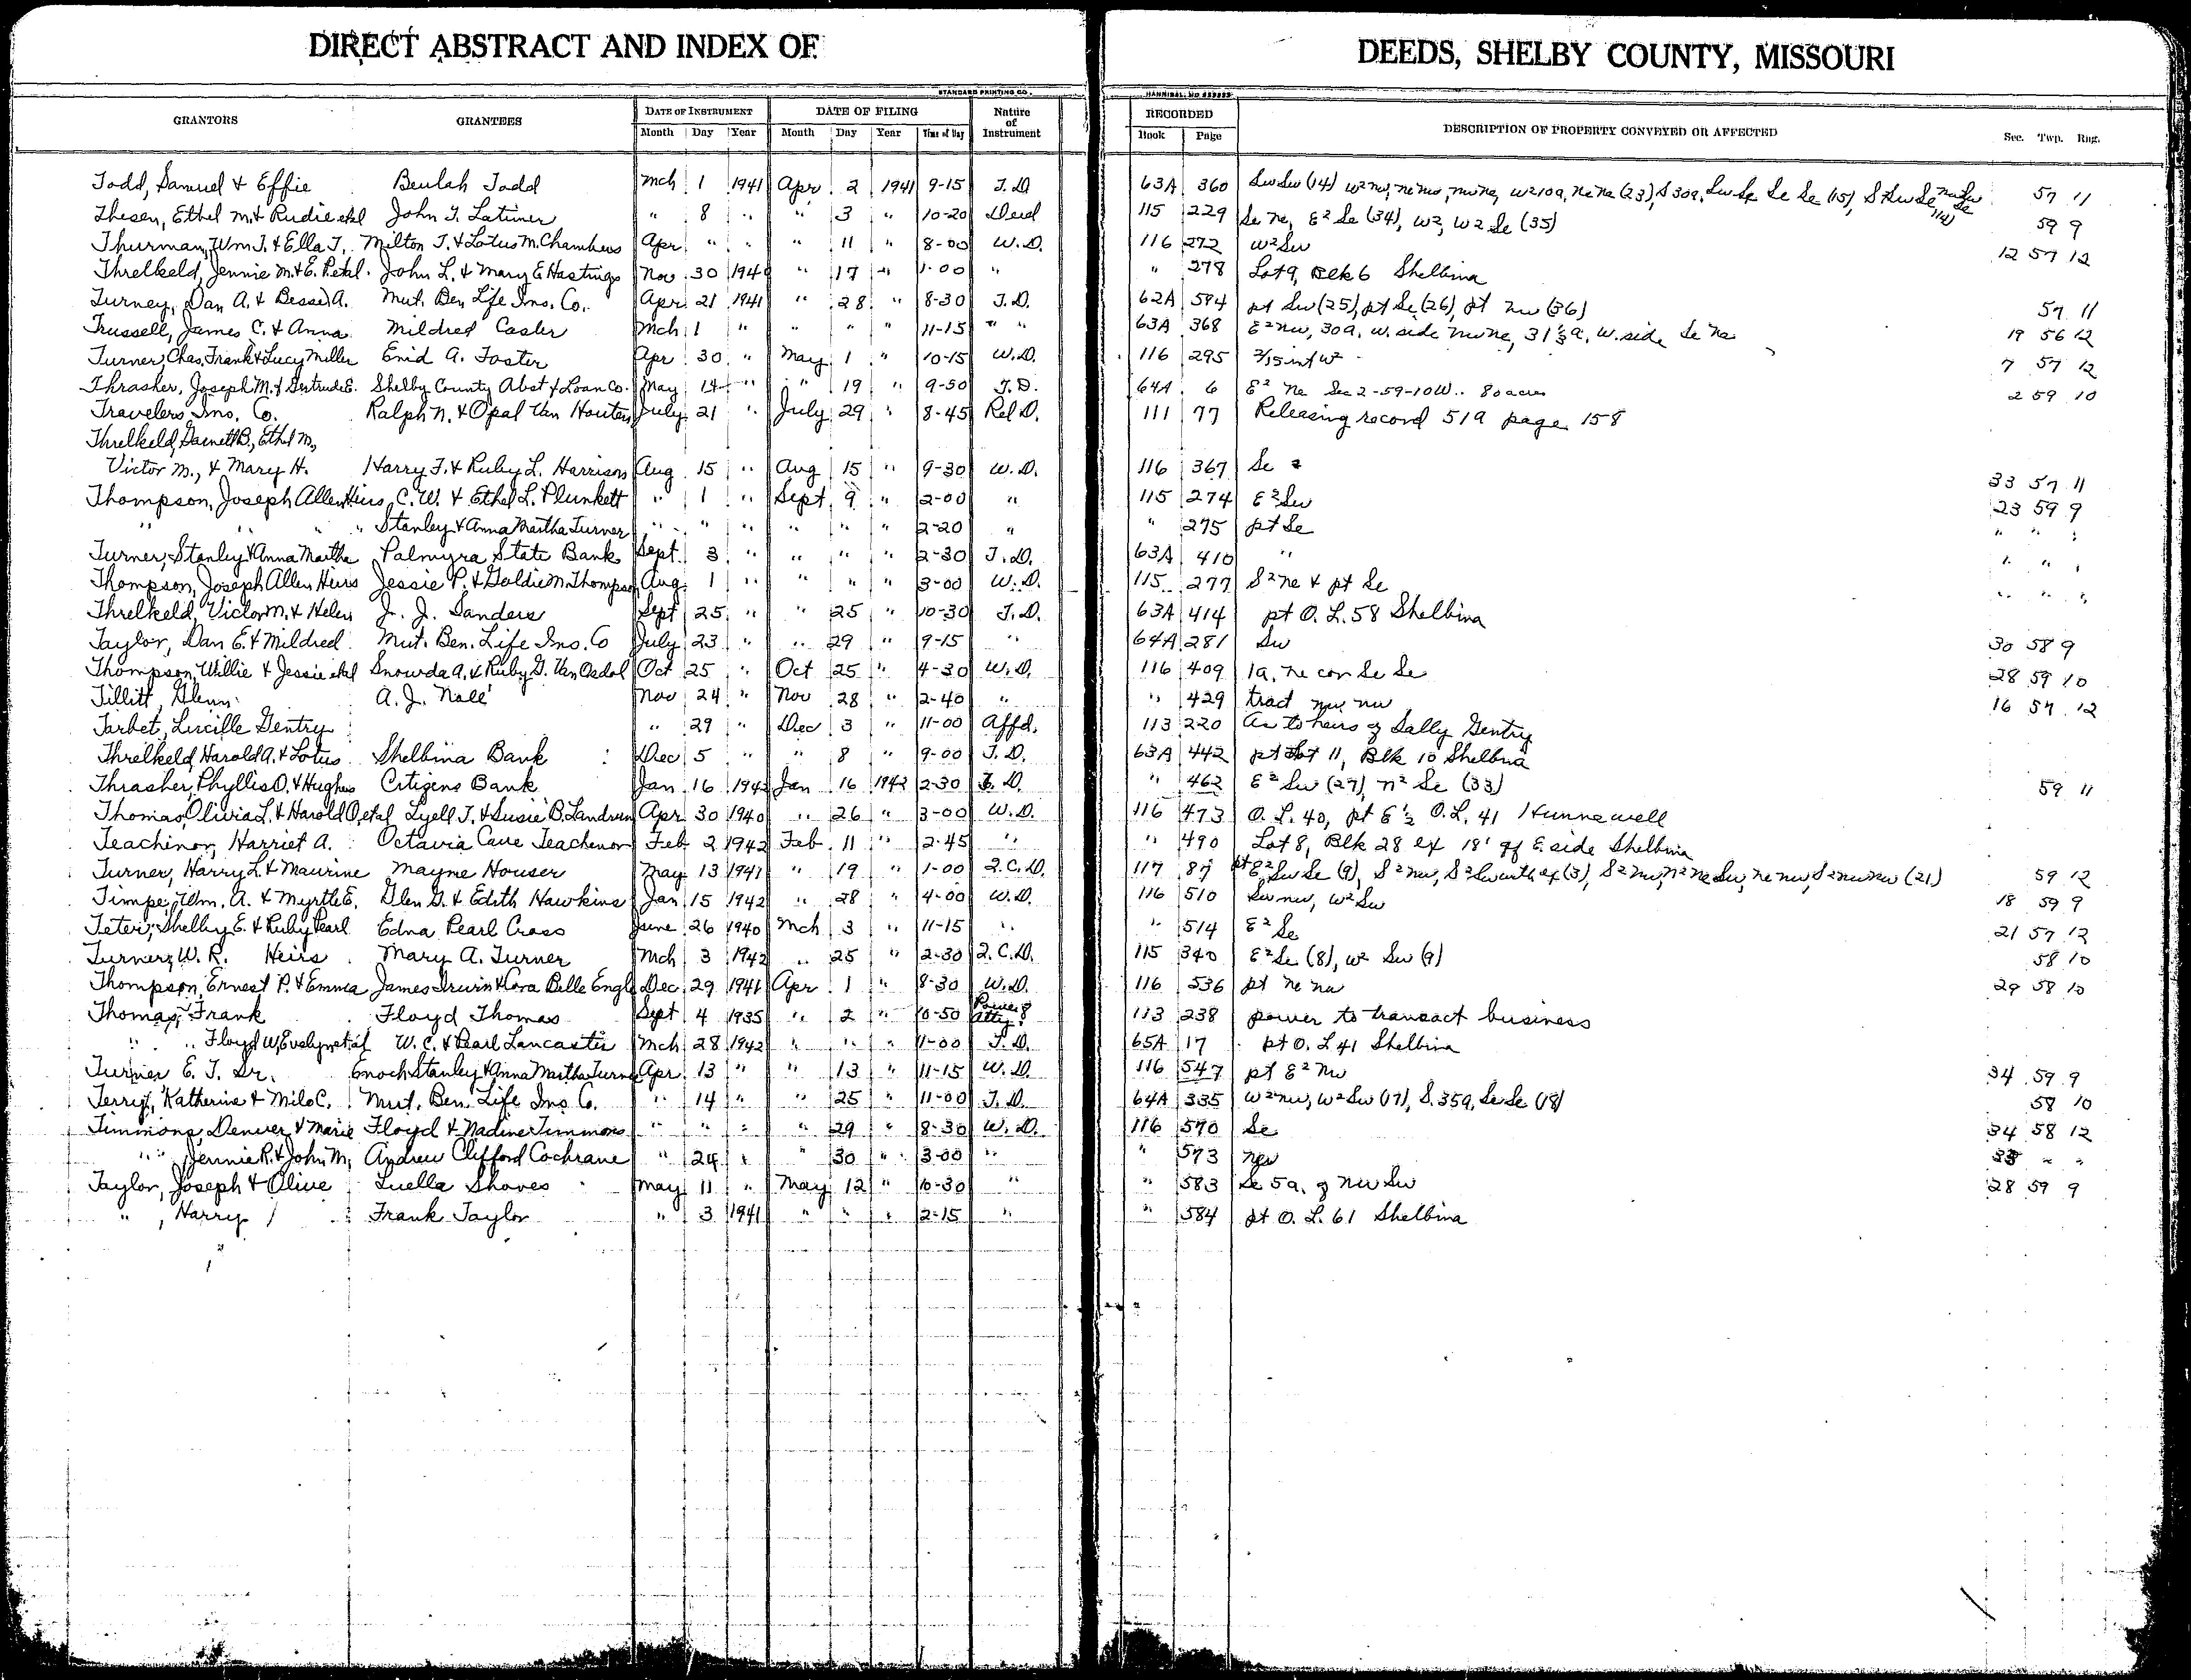 DIRECT ABSTRACT AND INDEX OF DEEDS, SHELBY COUNTY, MISSOURI
STANDARD PRINTING CO. HANNIBAL, MO
GRANTORS GRANTEES DATE OF INSTRUMENT DATE OF FILING Nature of Instrument RECORDED DESCRIPTION OF PROPERTY CONVEYED OR AFFECTED Sec. Twp. Rng.
Month Day Year Month Day Year Time of Day Book Page
Todd, Samuel & Effie Beulah Todd Mch 1 1941 Apr 2 1941 9-15 T.D 63A 360 Sw Sw (14) W2 nw, ne nw, nw ne, W2 10a, ne ne (23), S 30a, Sw Se Se Se (15), 57 11
Thesen, Ethel M. & Rudie etal John T. Latimer " 8 " " 3 " 10-20 Deed 115 229 Se ne, E2 Se (34), W2, W2 Se (35) 59 9
Thurman, Wm T. & Ella T. Milton T. & Lotus M. Chambers Apr " " " 11 " 8-00 W.D. 116 272 W2 Sw 12 57 12
Threlkeld, Jennie M. & E. P. etal. John L. & Mary E Hastings Nov 30 1940 " 17 " 1-00 " " 278 Lot 9, Blk 6 Shelbina
Turney, Dan A. & Bessie A. Mut. Ben Life Ins. Co. Apr 21 1941 " 28 " 8-30 T.D. 62A 594 pt Sw (25), pt Se (26), pt nw (36) 57 11
Trussell, James C. & Anna Mildred Casler Mch 1 " " " " 11-15 " " 63A 368 E2 nw, 30a. W. side nw ne, 31 1/3 a. W. side Se ne 19 56 12
Turner, Chas. Frank & Lucy Miller Enid A. Foster Apr 30 " May 1 " 10-15 W.D. 116 295 2/15 int W2 7 57 12
Thrasher, Joseph M. & Gertrude E. Shelby County Abst & Loan Co. May 14 " " 19 " 9-50 T.D. 64A 6 E2 Ne Sec 2-59-10W.. 80 acres 2 59 10
Travelers Ins. Co. Ralph N. & Opal Van Houten July 21 " July 29 " 8-45 Rel D. 111 77 Releasing record 519 page 158
Threlkeld, Garnett B., Ethel M.,
Victor M., & Mary H. Harry F. & Ruby L. Harrison Aug 15 " Aug 15 " 9-30 W.D. 116 367 Se 33 57 11
Thompson, Joseph Allen Heirs C. W. & Ethel L. Plunkett " 1 " Sept 9 " 2-00 " 115 274 E2 Sw 23 59 9
" " " Stanley & Anna Martha Turner " " " " " " 2-20 " " 275 pt Se " " "
Turner, Stanley & Anna Martha Palmyra State Bank Sept. 3 " " " " 2-30 T.D. 63A 410 " " " "
Thompson, Joseph Allen Heirs Jessie P. & Goldie M. Thompson Aug. 1 " " " " 3-00 W.D. 115 277 S2 ne & pt Se " " "
Threlkeld, Victor M. & Helen J. J. Sanders Sept 25 " " 25 " 10-30 T.D. 63A 414 pt O.L. 58 Shelbina
Taylor, Dan E. & Mildred Mut. Ben. Life Ins. Co July 23 " " 29 " 9-15 " 64A 281 Sw 30 58 9
Thompson, Willie & Jessie etal Snowda A. & Ruby G. Van Osdol Oct 25 " Oct 25 " 4-30 W.D. 116 409 1a, ne cor Se Se 28 59 10
Tillitt, Glenn A. J. Nole Nov 24 " Nov 28 " 2-40 " " 429 tract nw nw 16 57 12
Tarbet, Lucille Gentry " 29 " Dec 3 " 11-00 Affd. 113 220 As to heirs of Sally Gentry
Threlkeld, Harold A. & Lotus Shelbina Bank Dec 5 " " 8 " 9-00 T.D. 63A 442 pt Lot 11, Blk 10 Shelbina
Thrasher, Phyllis O. & Hughes Citizens Bank Jan 16 1942 Jan 16 1942 2-30 T.D. " 462 E2 Sw (27), n2 Se (33) 59 11
Thomas, Olivia L. & Harold O. etal Lyell T. & Susie B. Landrum Apr 30 1940 " 26 " 3-00 W.D. 116 473 O.L. 40, pt E 1/2 O.L. 41 Hunnewell
Teachenor, Harriet A. Octavia Cave Teachenor Feb 2 1942 Feb 11 " 2-45 " " 490 Lot 8, Blk 28 ex 18' off E. side Shelbina
Turner, Harry L. & Maurine Mayne Houser May 13 1941 " 19 " 1-00 Q.C.D. 117 87 pt E2 Sw Se (9), S2 nw, (3), S2 nw, ne nw, (21) 59 12
Timpe, Wm. A. & Myrtle E. Glen G. & Edith Hawkins Jan 15 1942 " 28 " 4-00 W.D. 116 510 Sw nw, W2 Sw 18 59 9
Teter, Shelby E. & Ruby Pearl Edna Pearl Cross June 26 1940 Mch 3 " 11-15 " " 514 E2 Se 21 57 12
Turner, W. R. Heirs Mary A. Turner Mch 3 1942 " 25 " 2-30 Q.C.D. 115 340 E2 Se (8), W2 Sw (9) 58 10
Thompson, Ernest P. & Emma James Irwin & Cora Belle Engle Dec 29 1941 Apr 1 " 8-30 W.D. 116 536 pt ne nw 29 58 10
Thomas, Frank Floyd Thomas Sept 4 1935 " 2 " 10-50 Power of Atty. 113 238 power to transact business
" " Floyd W., Evelyn etal W. C. & Pearl Lancaster Mch 28 1942 " " " 11-00 T.D. 65A 17 pt O.L 41 Shelbina
Turner E. T. Sr. Enoch Stanley & Anna Martha Turner Apr 13 " " 13 " 11-15 W.D. 116 547 pt E2 nw 34 59 9
Terry, Katherine & Milo C. Mut. Ben. Life Ins. Co. " 14 " " 25 " 11-00 T.D. 64A 335 W2 nw, W2 Sw (17), S. 35a, Se Se (18) 58 10
Timmons, Denver & Marie Floyd & Nadine Timmons " " " " 29 " 8-30 W.D. 116 570 Se 34 58 12
" Jennie R. & John M. Andrew Clifford Cochrane " 24 " " 30 " 3-00 " " 573 33 " "
Taylor, Joseph & Olive Luella Shoves May 11 " May 12 " 10-30 " " 583 Se 5a. of nw Sw 28 59 9
" , Harry Frank Taylor " 3 1941 " " " 2-15 " " 584 pt O.L. 61 Shelbina